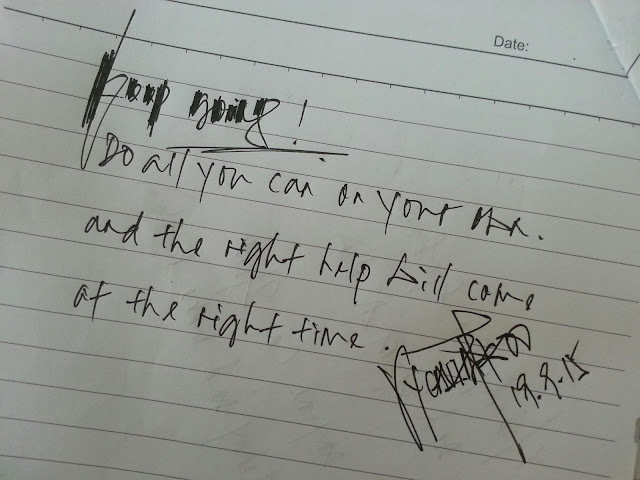 Date:
Keep going!
Do all you can on your own.
and the right help will come
at the right time.
19.9.15